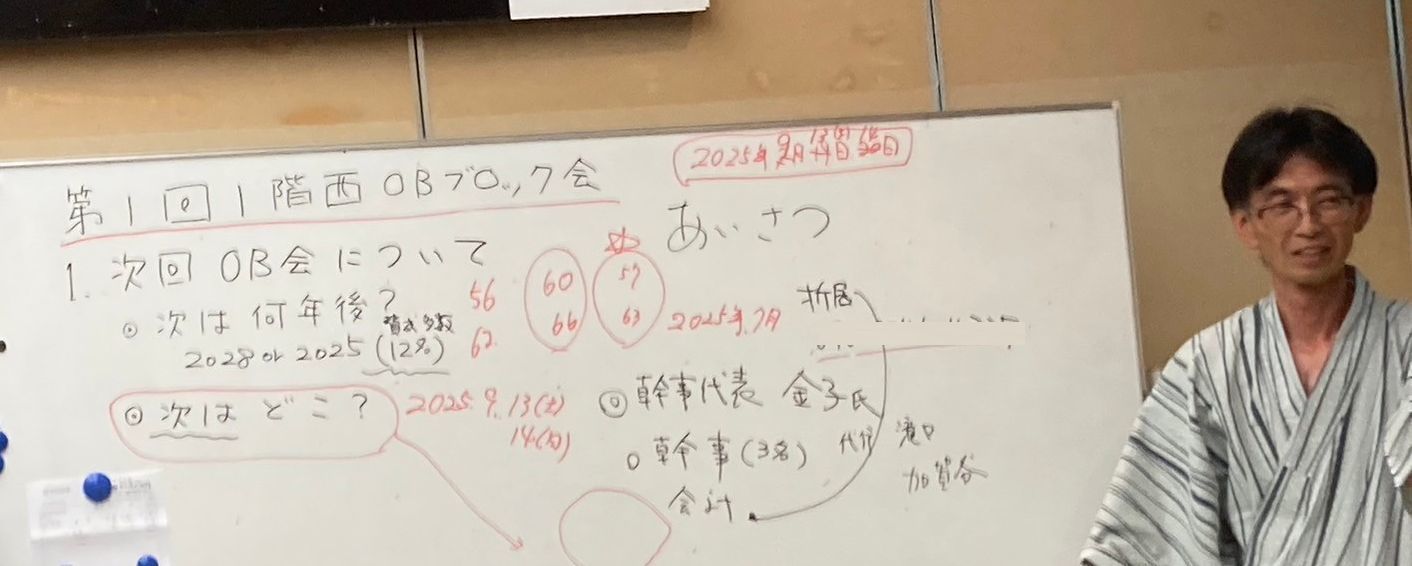 第1回1階西OBブロック会
1. 次回OB会について
◎ 次は何年後?
賛成多数
2028 or 2025 (12名)
56
62
60
66
57
63
2025年7月
◎ 次はどこ?
2025. 9. 13(土)
14(日)
2025年9月
13
14
あいさつ
折居
◎ 幹事代表 金子氏
○ 幹事(3名) 代行
滝口
加賀谷
会計